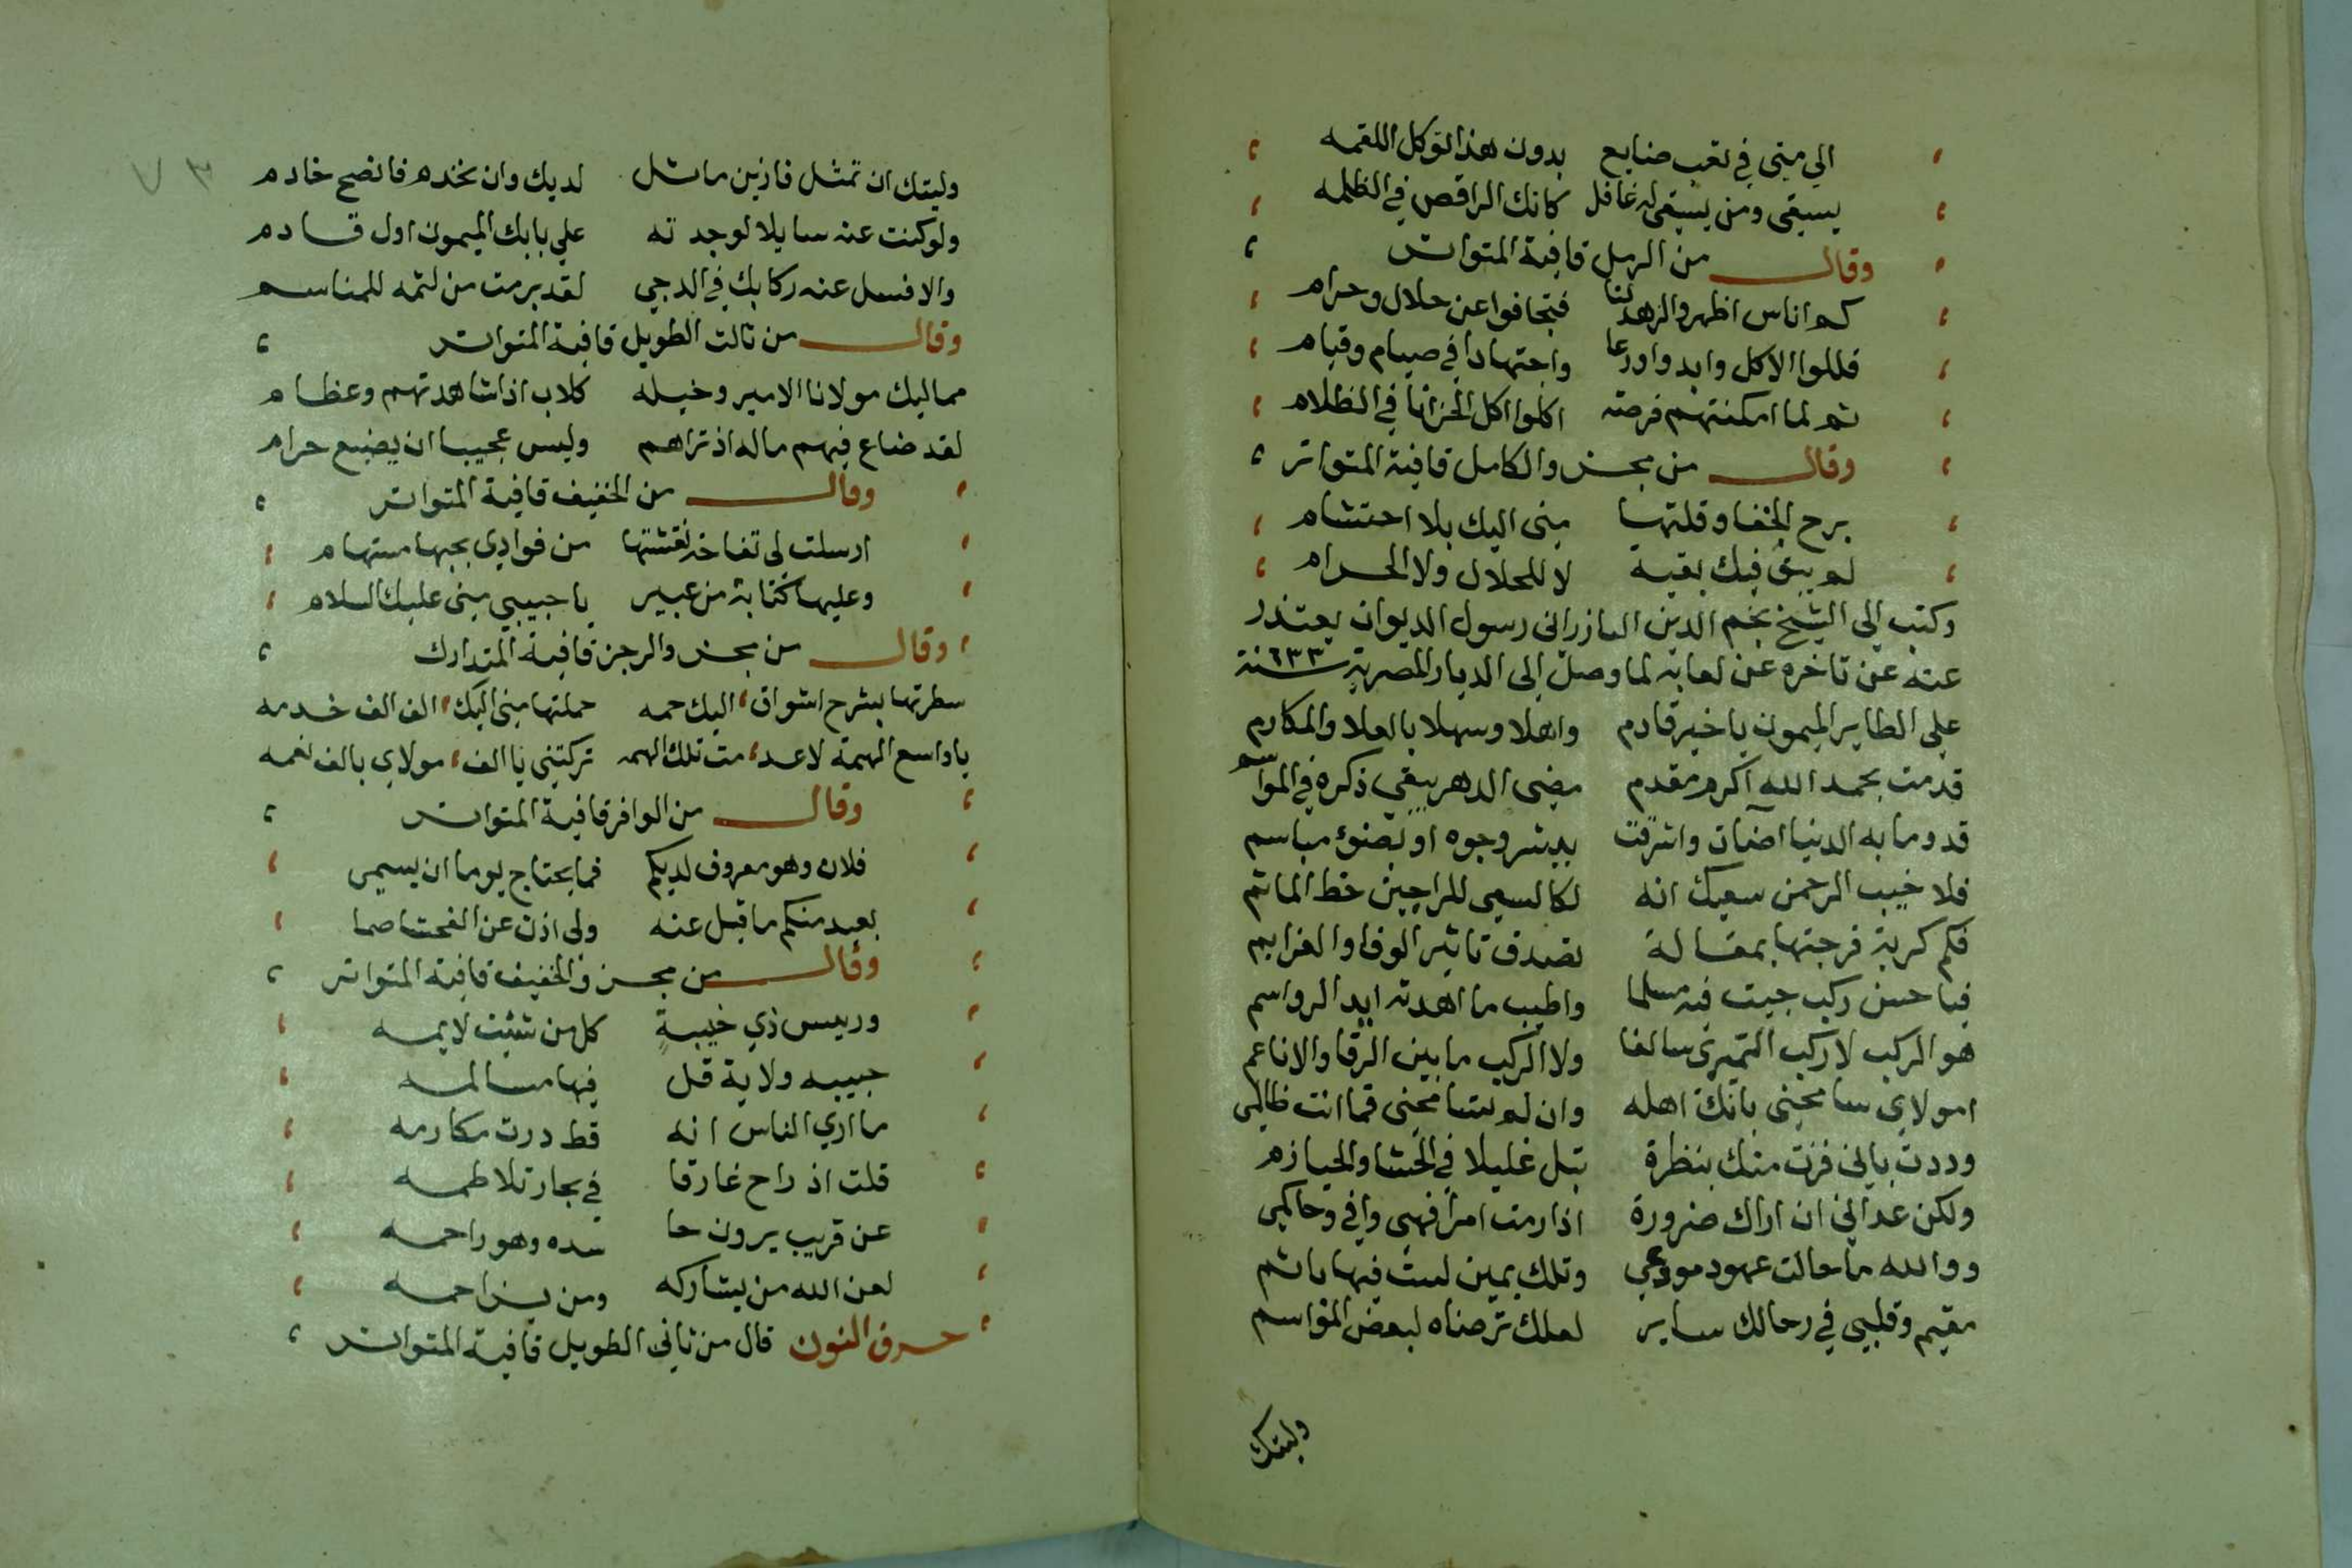 الي متي في تعب ضايع بدون هذا توكل اللقمه
يسقي ومن يسقي له غافل كانك الراقص في الظلمه
وقال من الرمل قافية المتواتر
كم اناس اظهروا الزهد لنا فتجافوا عن حلال وحرام
قللوا الاكل وابدوا ورعا واجتهادا في صيام وقيام
ثم لما امكنتهم فرصة اكلوا اكل الحزانا في الظلام
وقال من مجزو الكامل قافية المتواتر
برح الخفا وقلتها مني اليك بلا احتشام
لم يبق فيك بقية لا للحلال ولا الحرام
وكتب الي الشيخ نجم الدين رسول الديوان يعتذر
عنه عن تاخره عن لعابه لما وصل الى الديار المصرية سنة ٦٣٣
علي الطاير الميمون يا خير قادم واهلا وسهلا بالعلا والمكارم
قدمت بحمد الله اكرم مقدم مضى الدهر يبقي ذكره في المواسم
قدوما به الدنيا اضات واشرقت ببشر وجوه او بضوء مباسم
فلا خيب الرحمن سعيك انه لكالسعي للراجين حط الماثم
فكم كربة فرجتها بمقالة تصدق تاثير الوفا والعزايم
فيا حسن ركب جيت فيه مسلما واطيب ما اهدته ايد الرواسم
هو الركب لا ركب النميري سالفا ولا الركب ما بين النقا والاناعم
امولاي سامحني بانك اهله وان لم تسامحني فما انت ظالمي
وددت باني فزت منك بنظرة تبل غليلا في الحشا والحيازم
ولكن عداني ان اراك ضرورة اذا رمت امرا فهي وافي وحاكمي
ووالله ما حالت عهود مودتي وتلك يمين لست فيها باثم
مقيم وقلبي في رحالك ساير لعلك ترضاه لبعض المواسم
وليتك
٧٣
وليتك ان تمثل فازين ماثل لديك وان تخدم فانصح خادم
ولو كنت عنه سايلا لوجدته علي بابك الميمون اول قادم
والا فسل عنه ركابك في الدجي لقد برمت من لثمه للمناسم
وقال من ثالث الطويل قافية المتواتر
مماليك مولانا الامير وخيله كلاب اذا شاهدتهم وعظام
لقد ضاع فيهم ماله اذ تراهم وليس عجيبا ان يضيع حرام
وقال من الخفيف قافية المتواتر
ارسلت لي تفاخة نقشتها من فوادي بحبها مستهام
وعليها كتابة من عبير يا حبيبي مني عليك السلام
وقال من مجزو الرجز قافية المتدارك
سطرتها بشرح اشواق، اليك جمه حملتها مني اليك، الف الف خدمه
يا واسع الهمة لا عد، مت تلك الهمه تركتني يا الف، مولاي بالف نعمه
وقال من الوافر قافية المتواتر
فلان وهو معروف لديكم فما يحتاج يوما ان يسمي
بعيد منكم ما قيل عنه ولي اذن عن الفحشا صما
وقال من مجزو الخفيف قافية المتواتر
ورييس ذي خيبة كل من شيت لايمه
حبيبه ولاية قل فيها مسالمه
ما اري الناس انه قط درت مكارمه
قلت اذ راح غارقا في بحار تلاطمه
عن قريب يرون حا سده وهو راحمه
لعن الله من يشاركه ومن يزاحمه
حرف النون قال من ثاني الطويل قافية المتواتر